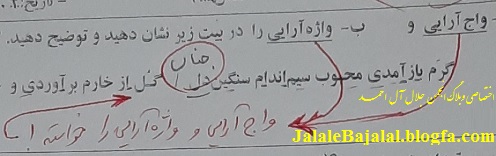 واج‌آرایی و ب- واژه‌آرایی را در بیت زیر نشان دهید و توضیح دهید.
جناب
گرم بازآمدی محبوب سیم‌اندام سنگین دل / گل از خارم برآوردی و
واج آرایی و واژه آرایی را خواسته!
اختصاصی وبلاگ انجمن جلال آل احمد
JalaleBajalal.blogfa.com